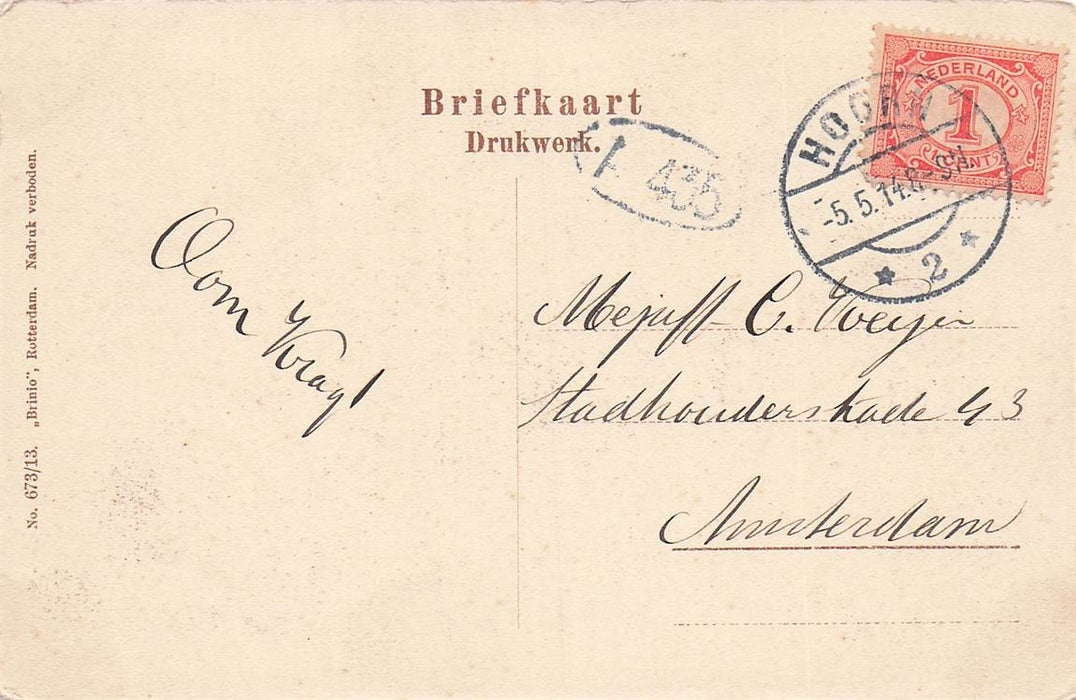 Briefkaart
Drukwerk.
NEDERLAND
1
CENT
HOORN
-5.5.14.8-9V.
2
435
Oom Kragt
Mejuff C. Weyer
Stadhouderskade 43
Amsterdam
No. 673/13. „Brinio", Rotterdam. Nadruk verboden.